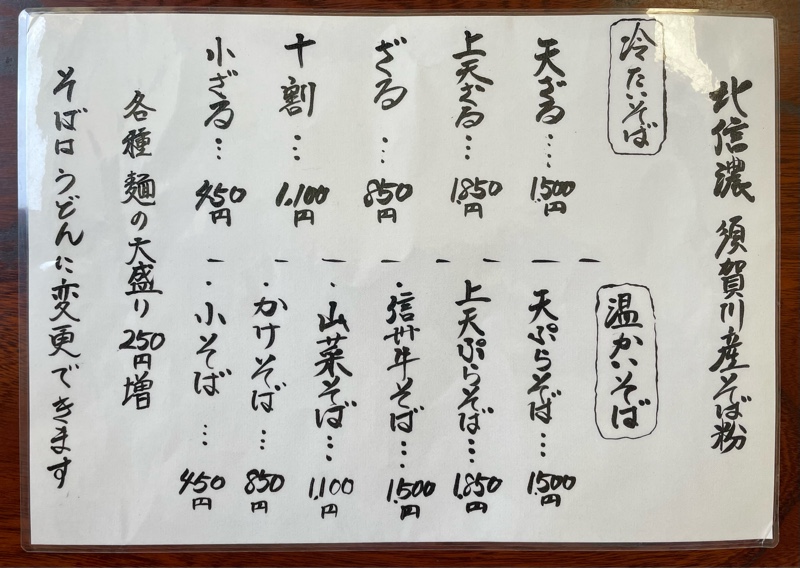 北信濃 須賀川産そば粉
冷たいそば
天ざる… 1,500円
上天ざる… 1,850円
ざる… 850円
十割… 1,100円
小ざる… 450円
温かいそば
天ぷらそば… 1,500円
上天ぷらそば… 1,850円
・信州牛そば… 1,500円
・山菜そば… 1,100円
・かけそば… 850円
・小そば… 450円
各種麺の大盛り 250円増
そばはうどんに変更できます